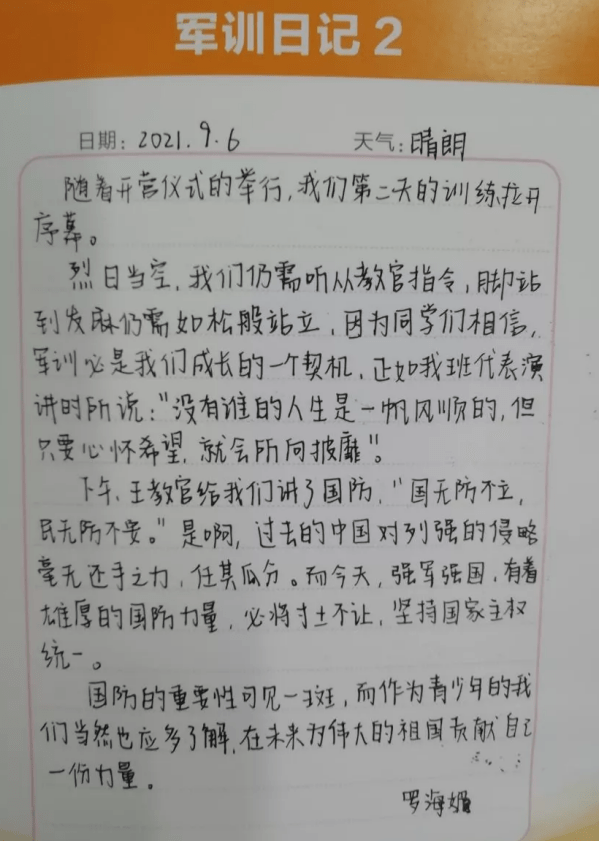 军训日记2
日期: 2021.9.6 天气: 晴朗
随着开营仪式的举行,我们第二天的训练拉开
序幕。
烈日当空,我们仍需听从教官指令,脚站
到发麻仍需如松般站立,因为同学们相信,
军训必是我们成长的一个契机,正如我班代表演
讲时所说:“没有谁的人生是一帆风顺的,但
只要心怀希望,就会所向披靡”。
下午,王教官给我们讲了国防,“国无防不立,
民无防不安。”是啊,过去的中国对列强的侵略
毫无还手之力,任其瓜分。而今天,强军强国,有着
雄厚的国防力量,必将寸土不让,坚持国家主权
统一。
国防的重要性可见一斑,而作为青少年的我
们当然也应多了解,在未来为伟大的祖国贡献自己
一份力量。
罗海媚